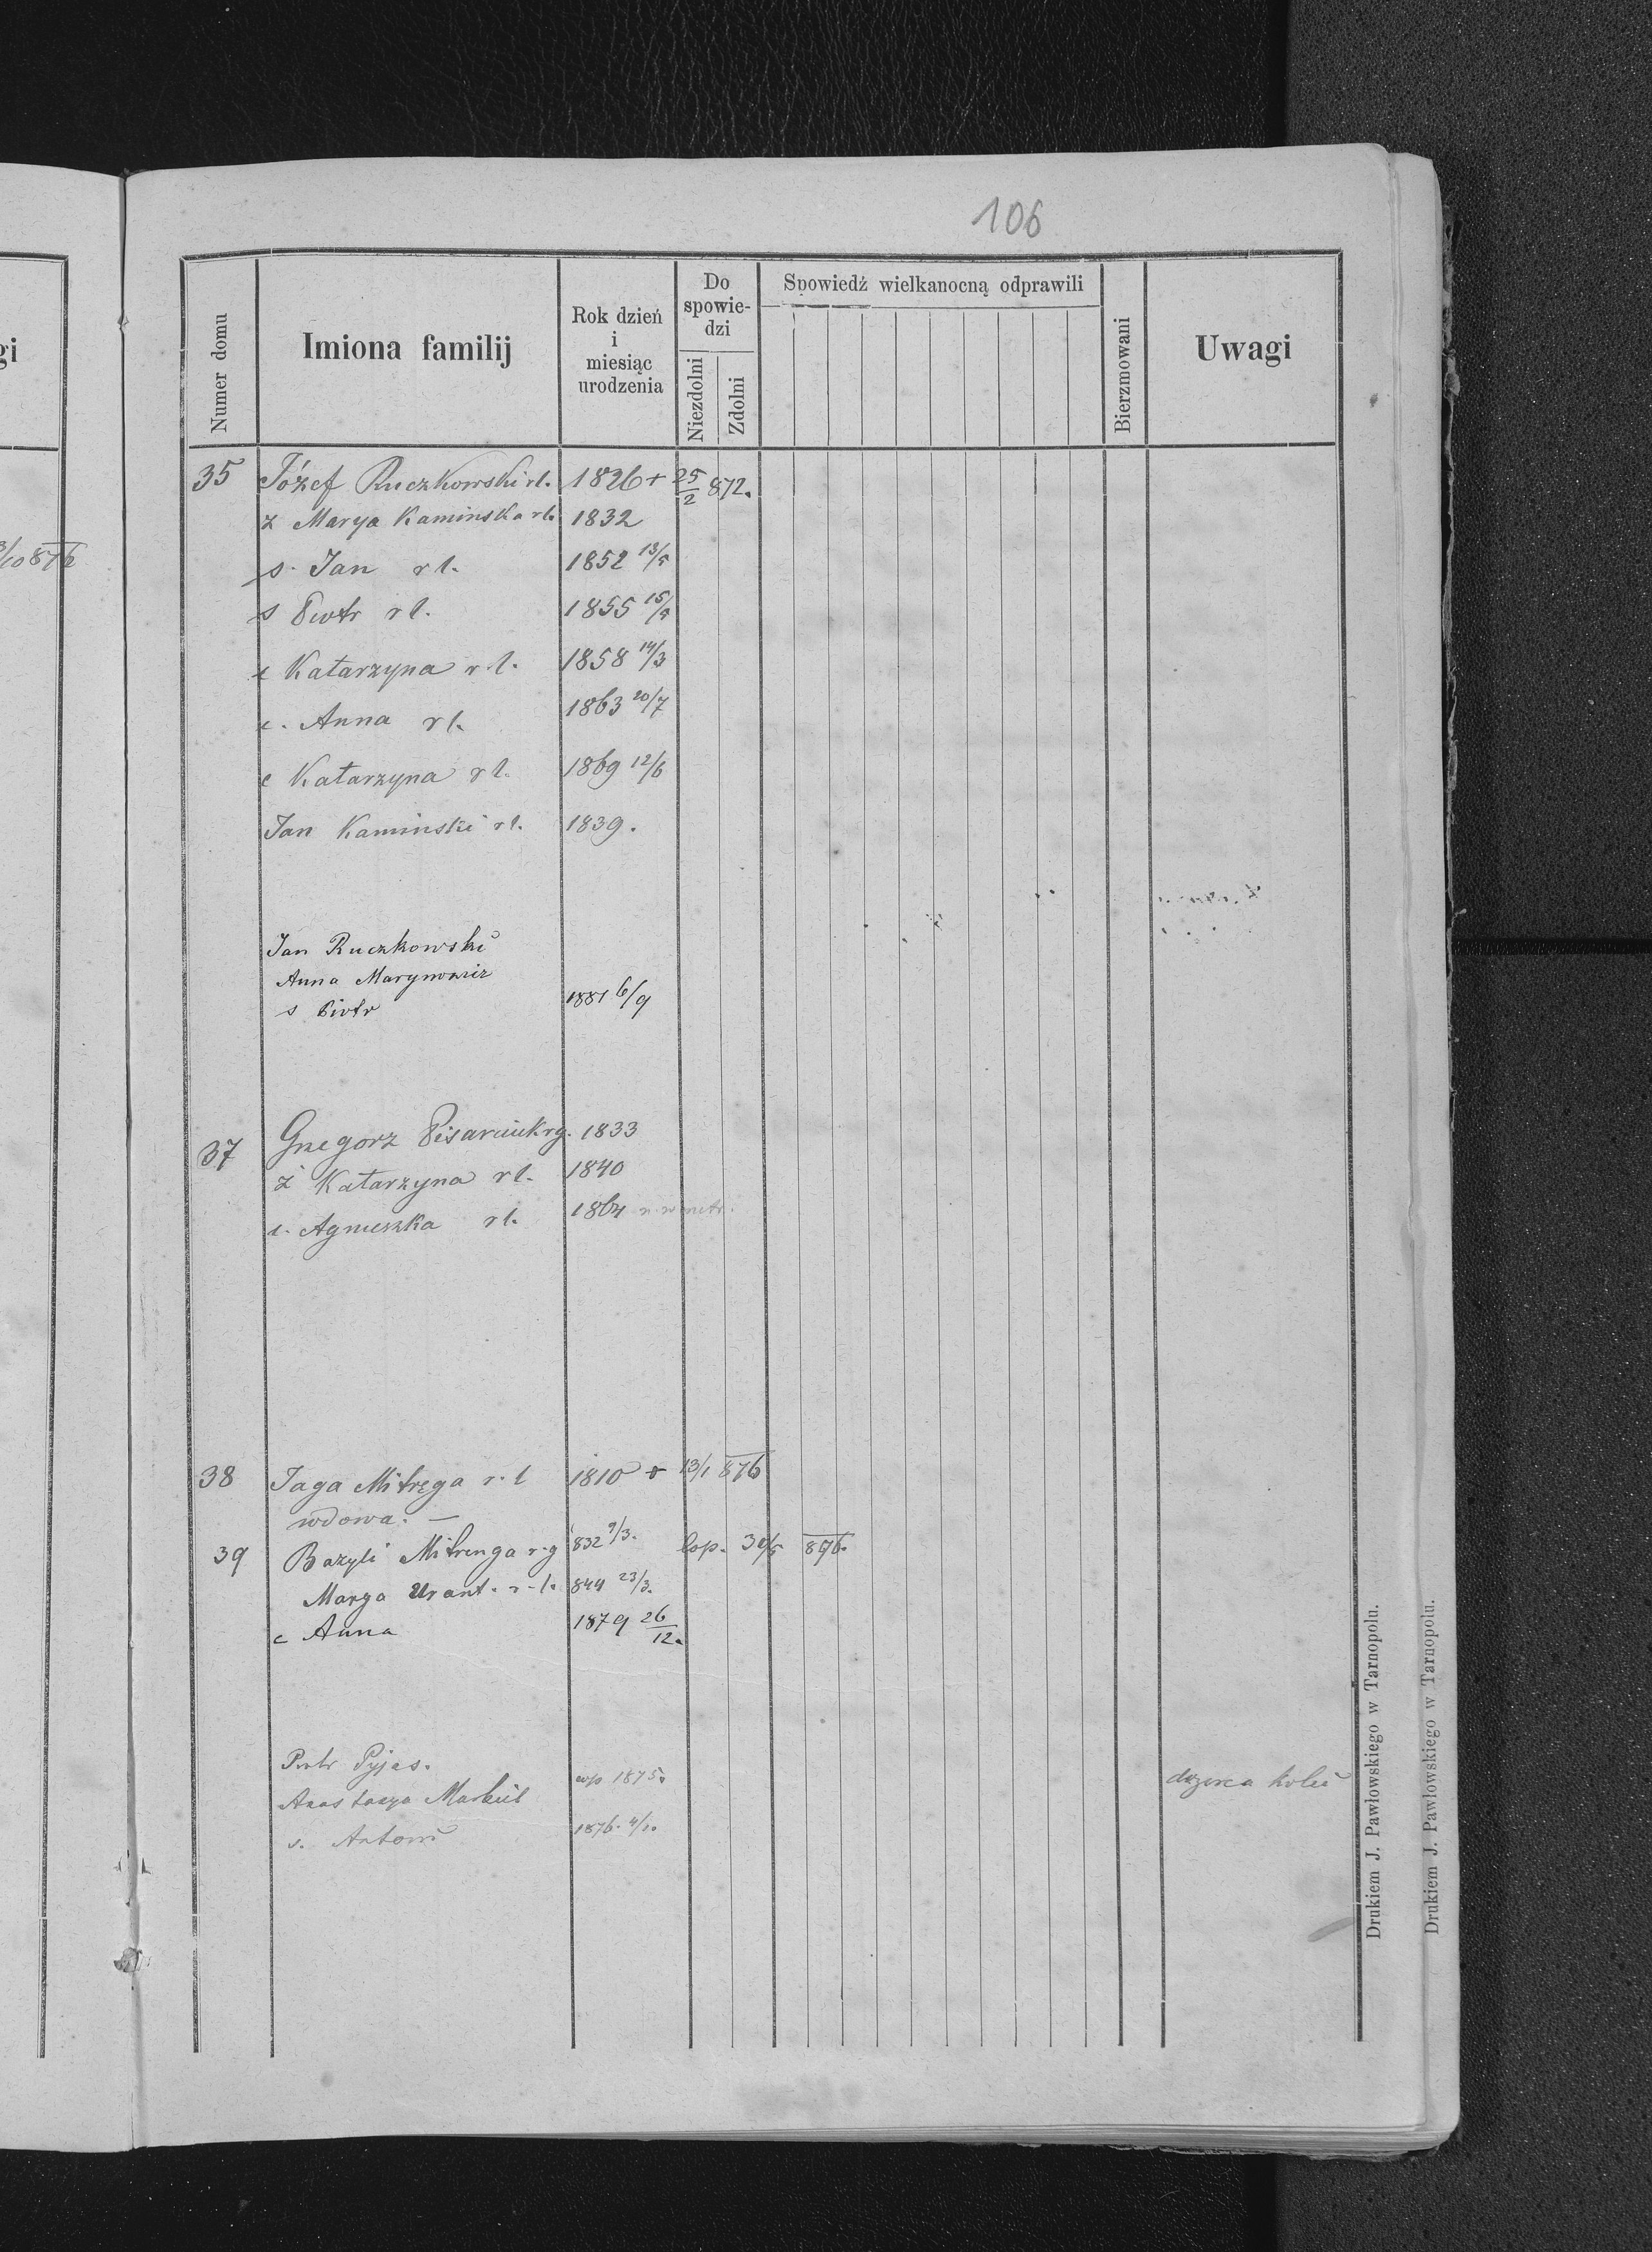 106
gi
3/10 876
Numer domu
Imiona familij
Rok dzień
i
miesiąc
urodzenia
Do
spowie-
dzi
Niezdolni
Zdolni
Spowiedź wielkanocną odprawili
Bierzmowani
Uwagi
35 Józef Ruczkowski rl. 1826 + 25/2 872.
ż Marya Kaminska rl. 1832
s. Jan rl. 1852 13/5
s Piotr rl. 1855 15/
c Katarzyna rl. 1858 14/3
c. Anna rl. 1863 20/7
c Katarzyna rl. 1869 12/6
Jan Kaminski rl. 1839.
Jan Ruczkowski
Anna Marynowicz
s Piotr 1881 6/9
37 Grzegorz Pisarciuk rg. 1833
ż Katarzyna rl. 1840
c. Agnieszka rl. 1864 n. w metr.
38 Jaga Mitręga r. l 1810 + 13/1 876
wdowa. —
39 Bazyli Mitrenga r. g 832 9/3. cop. 30/5 876.
Marya Urant. r-l. 844 23/3.
c Anna 1879 26/12.
Piotr Pyjas.
Anastazya Markiil cop 1875.
s. Antoni 1876. 4/10.
dozorca kolei
Drukiem J. Pawłowskiego w Tarnopolu.
Drukiem J. Pawłowskiego w Tarnopolu.